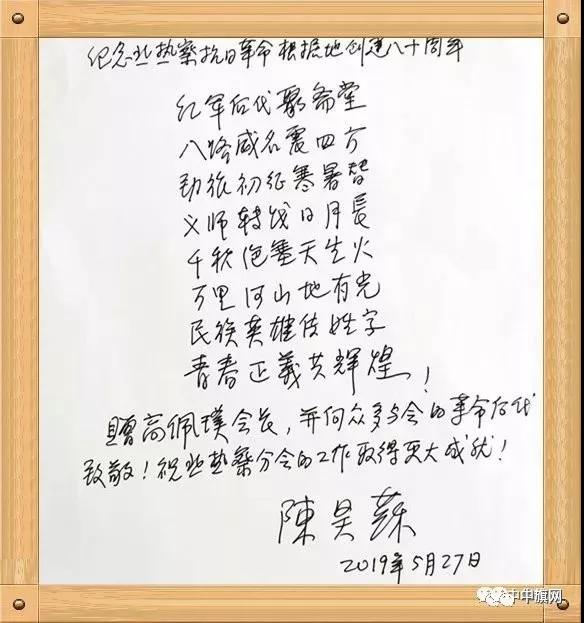 纪念冀热察抗日革命根据地创建八十周年
红军后代聚斋堂
八路威名震四方
劲旅初征寒暑替
义师转战日月長
千秋天生火
万里河山地有光
民族英雄传姓字
青春正義共輝煌!
赠高佩璞会长,并向众多与会的革命后代
致敬!祝冀热察分会的工作取得更大成就!
陳昊蘇
2019年5月27日
中中旗网